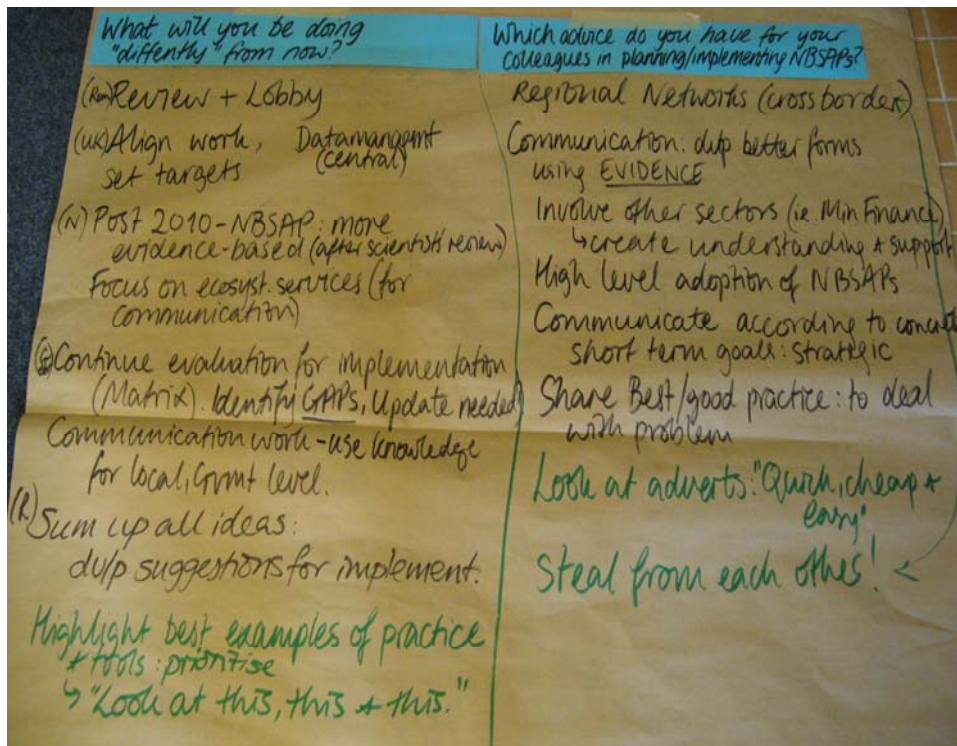 What will you be doing
"diffently" from now?
(Ro) Review + Lobby
(UK) Align work, Datamanagemt
set targets (central)
(N) Post 2010-NBSAP: more
evidence-based (after scientists review)
Focus on ecosyst. services (for
communication)
(G) Continue evaluation for implementation
(Matrix). Identify GAPs, Update needed
Communication work - use knowledge
for local, Gvmt level.
(R) Sum up all ideas:
dvlp suggestions for implement.
Highlight best examples of practice
+ tools: prioritise
↳ "Look at this, this + this."
Which advice do you have for your
colleagues in planning/implementing NBSAPs?
Regional Networks (cross border)
Communication: dvlp better forms
using EVIDENCE
Involve other sectors (ie. Min Finance)
↳ create understanding + support
High level adoption of NBSAPs
Communicate according to concrete
short term goals: strategic
Share Best/good practice: to deal
with problem
Look at adverts: "Quick, cheap +
easy"
Steal from each other!